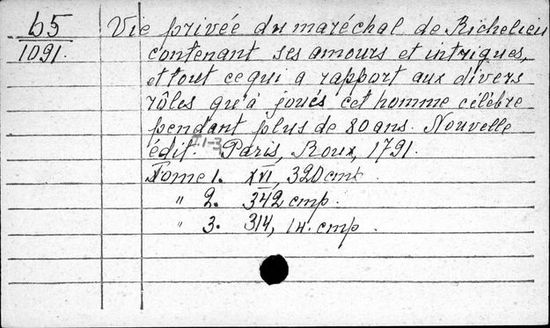 b5
1091.
Vie privée du maréchal de Richelieu
contenant ses amours et intrigues,
et tout ce qui a rapport aux divers
rôles qu'à joués cet homme célèbre
pendant plus de 80 ans. Nouvelle
édit. I.1-3 Paris, Roux, 1791.
Tome 1. XVI, 320 cmp.
" 2. 342 cmp.
" 3. 314, 14. cmp.